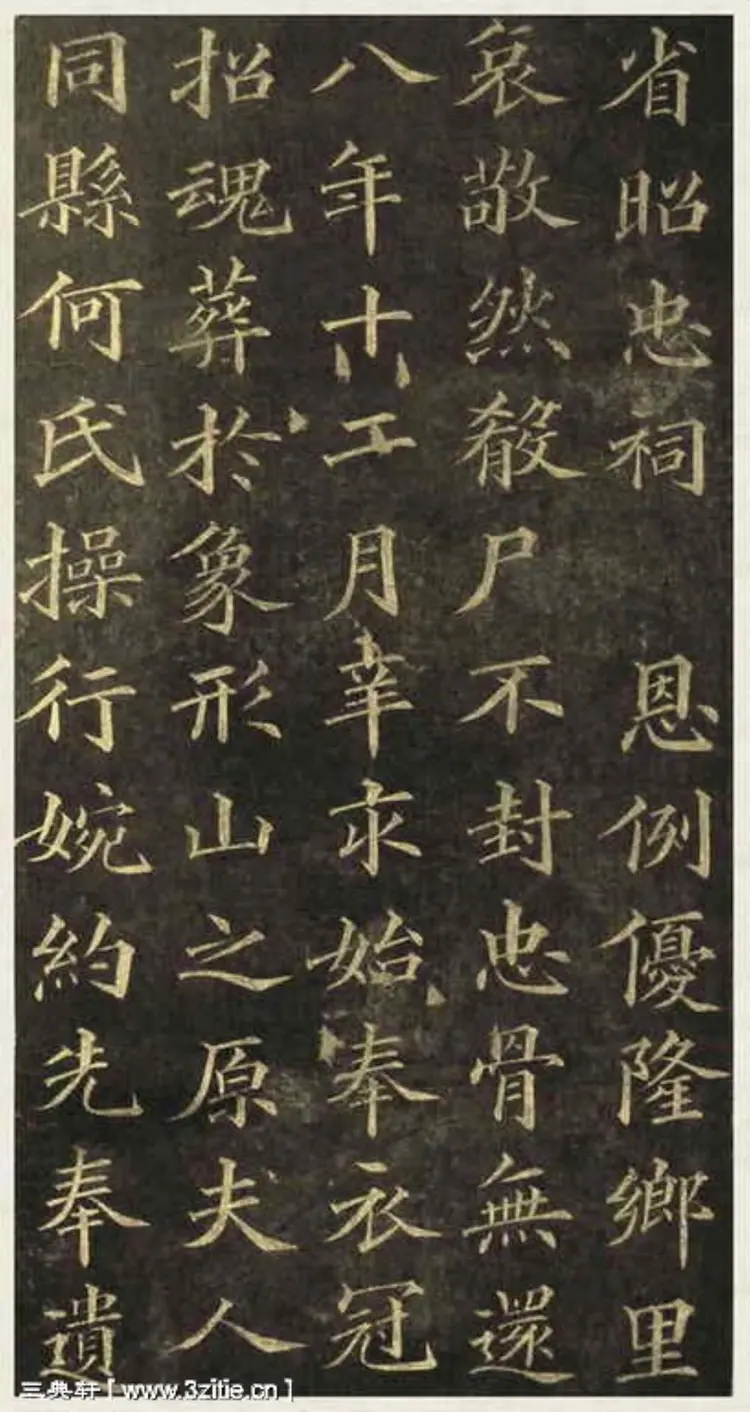 省昭忠祠 恩例優隆鄉里
哀敬然殽尸不封忠骨無還
八年十工月幸求始奉衣冠
招魂葬於象形山之原夫人
同縣何氏操行婉約先奉遺
三典轩[www.3zitie.cn]